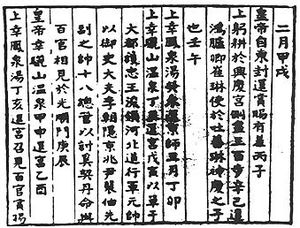 二月甲戌
皇帝自東封還賞賜有差丙子
上躬耕於興慶宮側盡三百步辛己遣
鴻臚卿崔琳使於吐蕃琳神慶之子
也壬午
上幸鳳泉湯癸未還京師五月丁卯
上幸驪山溫泉丁亥還宮戊寅以單于
大都護忠王浚領河北道行軍元帥
以御史大夫李朝隱京兆尹裴伷先
副之帥十八總管以討奚契丹命與
百官相見於光明門庚辰
皇帝幸驪山溫泉甲申還宮乙酉
上幸鳳泉湯丁亥還宮召見百官賞賜